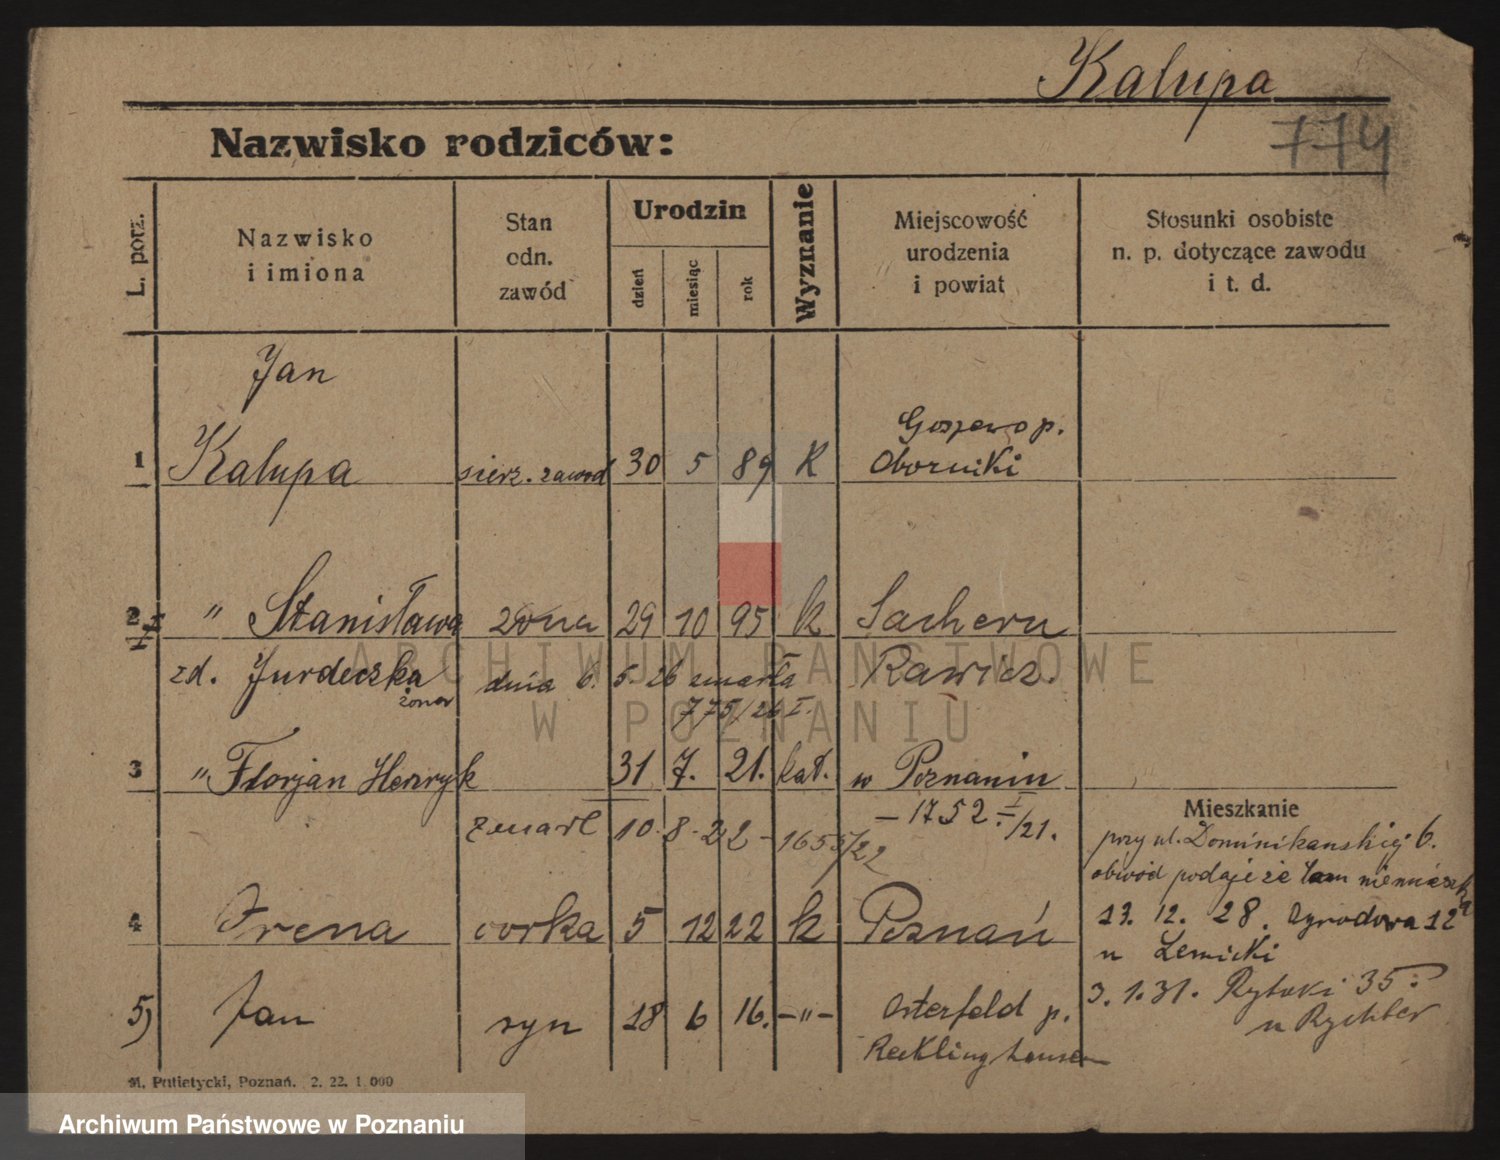 Kalupa
774
Nazwisko rodziców:
L. porz.
Nazwisko
i imiona
Stan
odn.
zawód
Urodzin
dzień
miesiąc
rok
Wyznanie
Miejscowość
urodzenia
i powiat
Stosunki osobiste
n. p. dotyczące zawodu
i t. d.
Jan
1 Kalupa sierz. zawod 30 5 89 K Oborniki
2 " Stanisława żona 29 10 95 k Sachern
zd. Jurdeczka dnia 6. 5. 26 zmarła Rawicz.
żona
775/26 I.
3 " Florjan Henryk 31 7. 21. kat. w Poznaniu
– 1752. I/21.
zmarł 10. 8. 22 – 1655/22
Mieszkanie
przy ul. Dominikańskiej 6.
obwód podaje że tam niemieszka
4 Irena corka 5 12 22 k Poznań
13. 12. 28. Ogrodowa 12
u Lemicki
5) Jan syn 18 6 16. –"– Osterfeld p.
Recklinghausen
3. 1. 31. Rybaki 35
u Rychter
M. Putietycki, Poznań. 2. 22. 1 000
ARCHIWUM PAŃSTWOWE
W POZNANIU
Archiwum Państwowe w Poznaniu